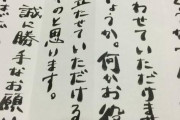 わせていただけま
ょうか。何かお
立たせていただける
のと思います。
誠に勝手なお願い